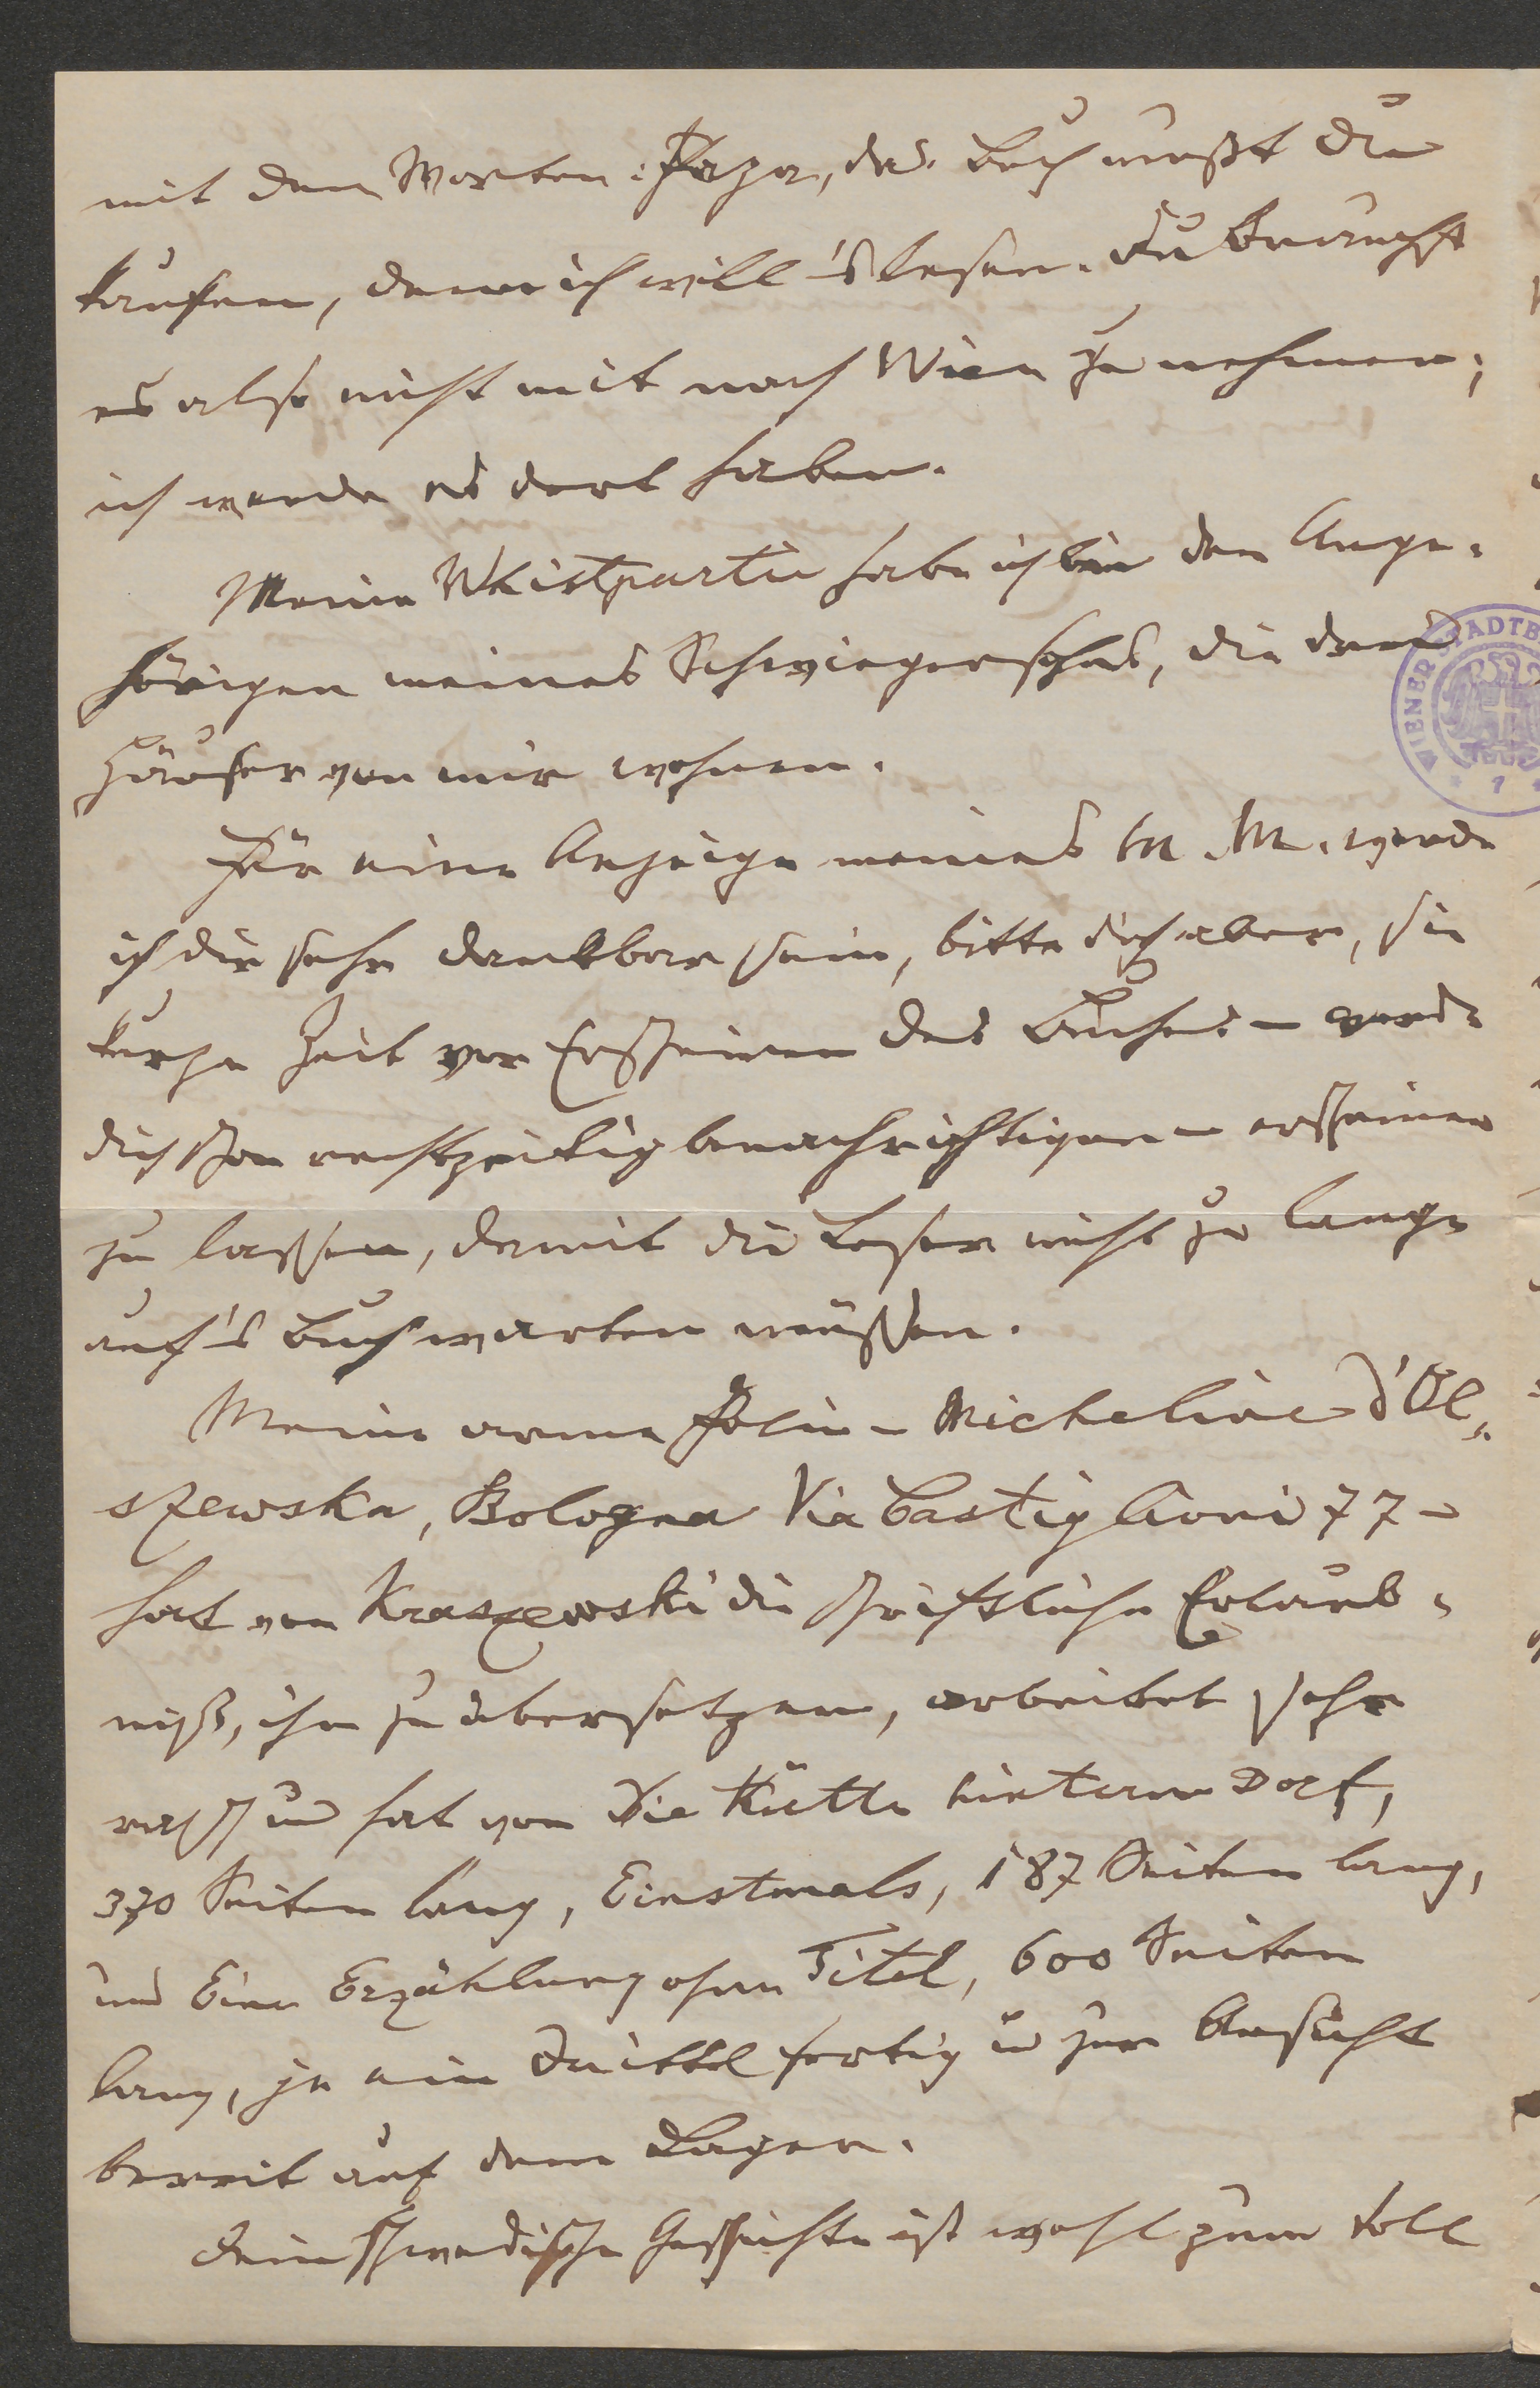 mit den Worten: Papa, das Buch mußt Du
kaufen, denn ich will's lesen. Du brauchst
es also nicht mit nach Wien zu nehmen;
ich werde es dort haben.
Meine Whistpartie habe ich bei den Ange-
hörigen meines Schwiegersohns, die drei
Häuser von mir wohnen.
Für eine Anzeige meines M. M. werde
ich Dir sehr dankbar sein, bitte Dich aber, sie
kurze Zeit vor Erscheinen des Buches – werde
Dich schon rechtzeitig benachrichtigen – erscheinen
zu lassen, damit die Leser nicht zu lange
auf's Buch warten müssen.
Meine arme Polin – Micheline d'Ol-
szewska, Bologna Via Castiglioni 77 –
hat von Kraszewski die schriftliche Erlaub-
niß, ihn zu übersetzen, arbeitet sehr
rasch und hat von Die Hütte hinterm Dorf,
370 Seiten lang, Einstmals, 187 Seiten lang,
und Einer Erzählung ohne Titel, 600 Seiten
lang, je ein Drittel fertig u zur Ansicht
bereit auf dem Lager.
Deine schwedische Geschichte ist wohl zum toll
WIENER STADTB
1